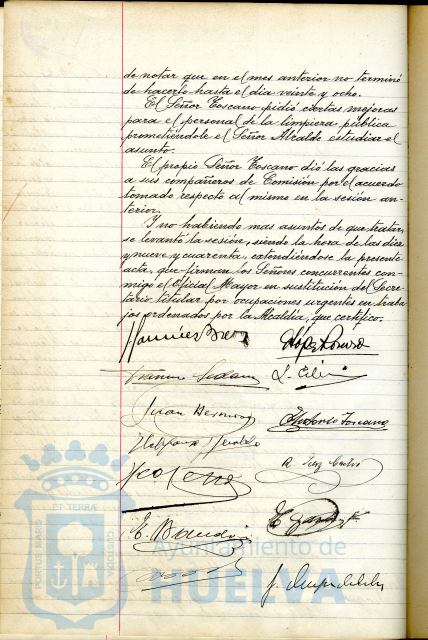 de notar que en el mes anterior no terminó
de hacerlo hasta el dia veinte y ocho.
El Señor Toscano pidió ciertas mejoras
para el personal de la limpieza pública
prometiéndole el Señor Alcalde estudiar el
asunto.
El propio Señor Toscano dió las gracias
a sus compañeros de Comisión por el acuerdo
tomado respecto al mismo en la sesión an-
terior.
Y no habiendo mas asuntos de que tratar,
se levantó la sesión, siendo la hora de las diez
y nueve y cuarenta, extendiéndose la presente
acta, que firman los Señores concurrentes con-
migo el Oficial Mayor en sustitución del Secre-
tario titular por ocupaciones urgentes en traba-
jos ordenados por la Alcaldía, que certifico.
Juan
Toscano
PORTUS MARIS
ET TERRAE
CUSTODIA
Ayuntamiento de
HUELVA